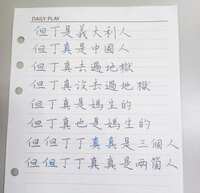 DAILY PLAY
但丁是義大利人
但丁真是中國人
但丁真去過地獄
但丁真沒去過地獄
但丁真是媽生的
但丁真也是媽生的
但但丁丁真真是三個人
但但丁丁真真是兩個人